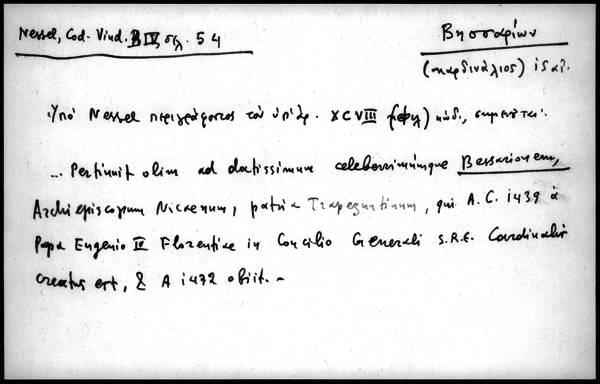 Nessel, Cod. Vind. B IV, σελ. 54
Βησσαρίων
(καρδινάλιος)
Ὑπὸ Nessel περιγράφοντος τὸν ὑπ' ἀρ. XCVIII κώδ., σημειοῦται:
... Pertinuit olim ad doctissimum celeberrimumque Bessarionem,
Archiepiscopum Nicaenum, patria Trapezuntinum, qui A.C. 1439 à
Papa Eugenio IV Florentiae in Concilio Generali S.R.E. Cardinalis
creatus est, & A 1472 obiit. -